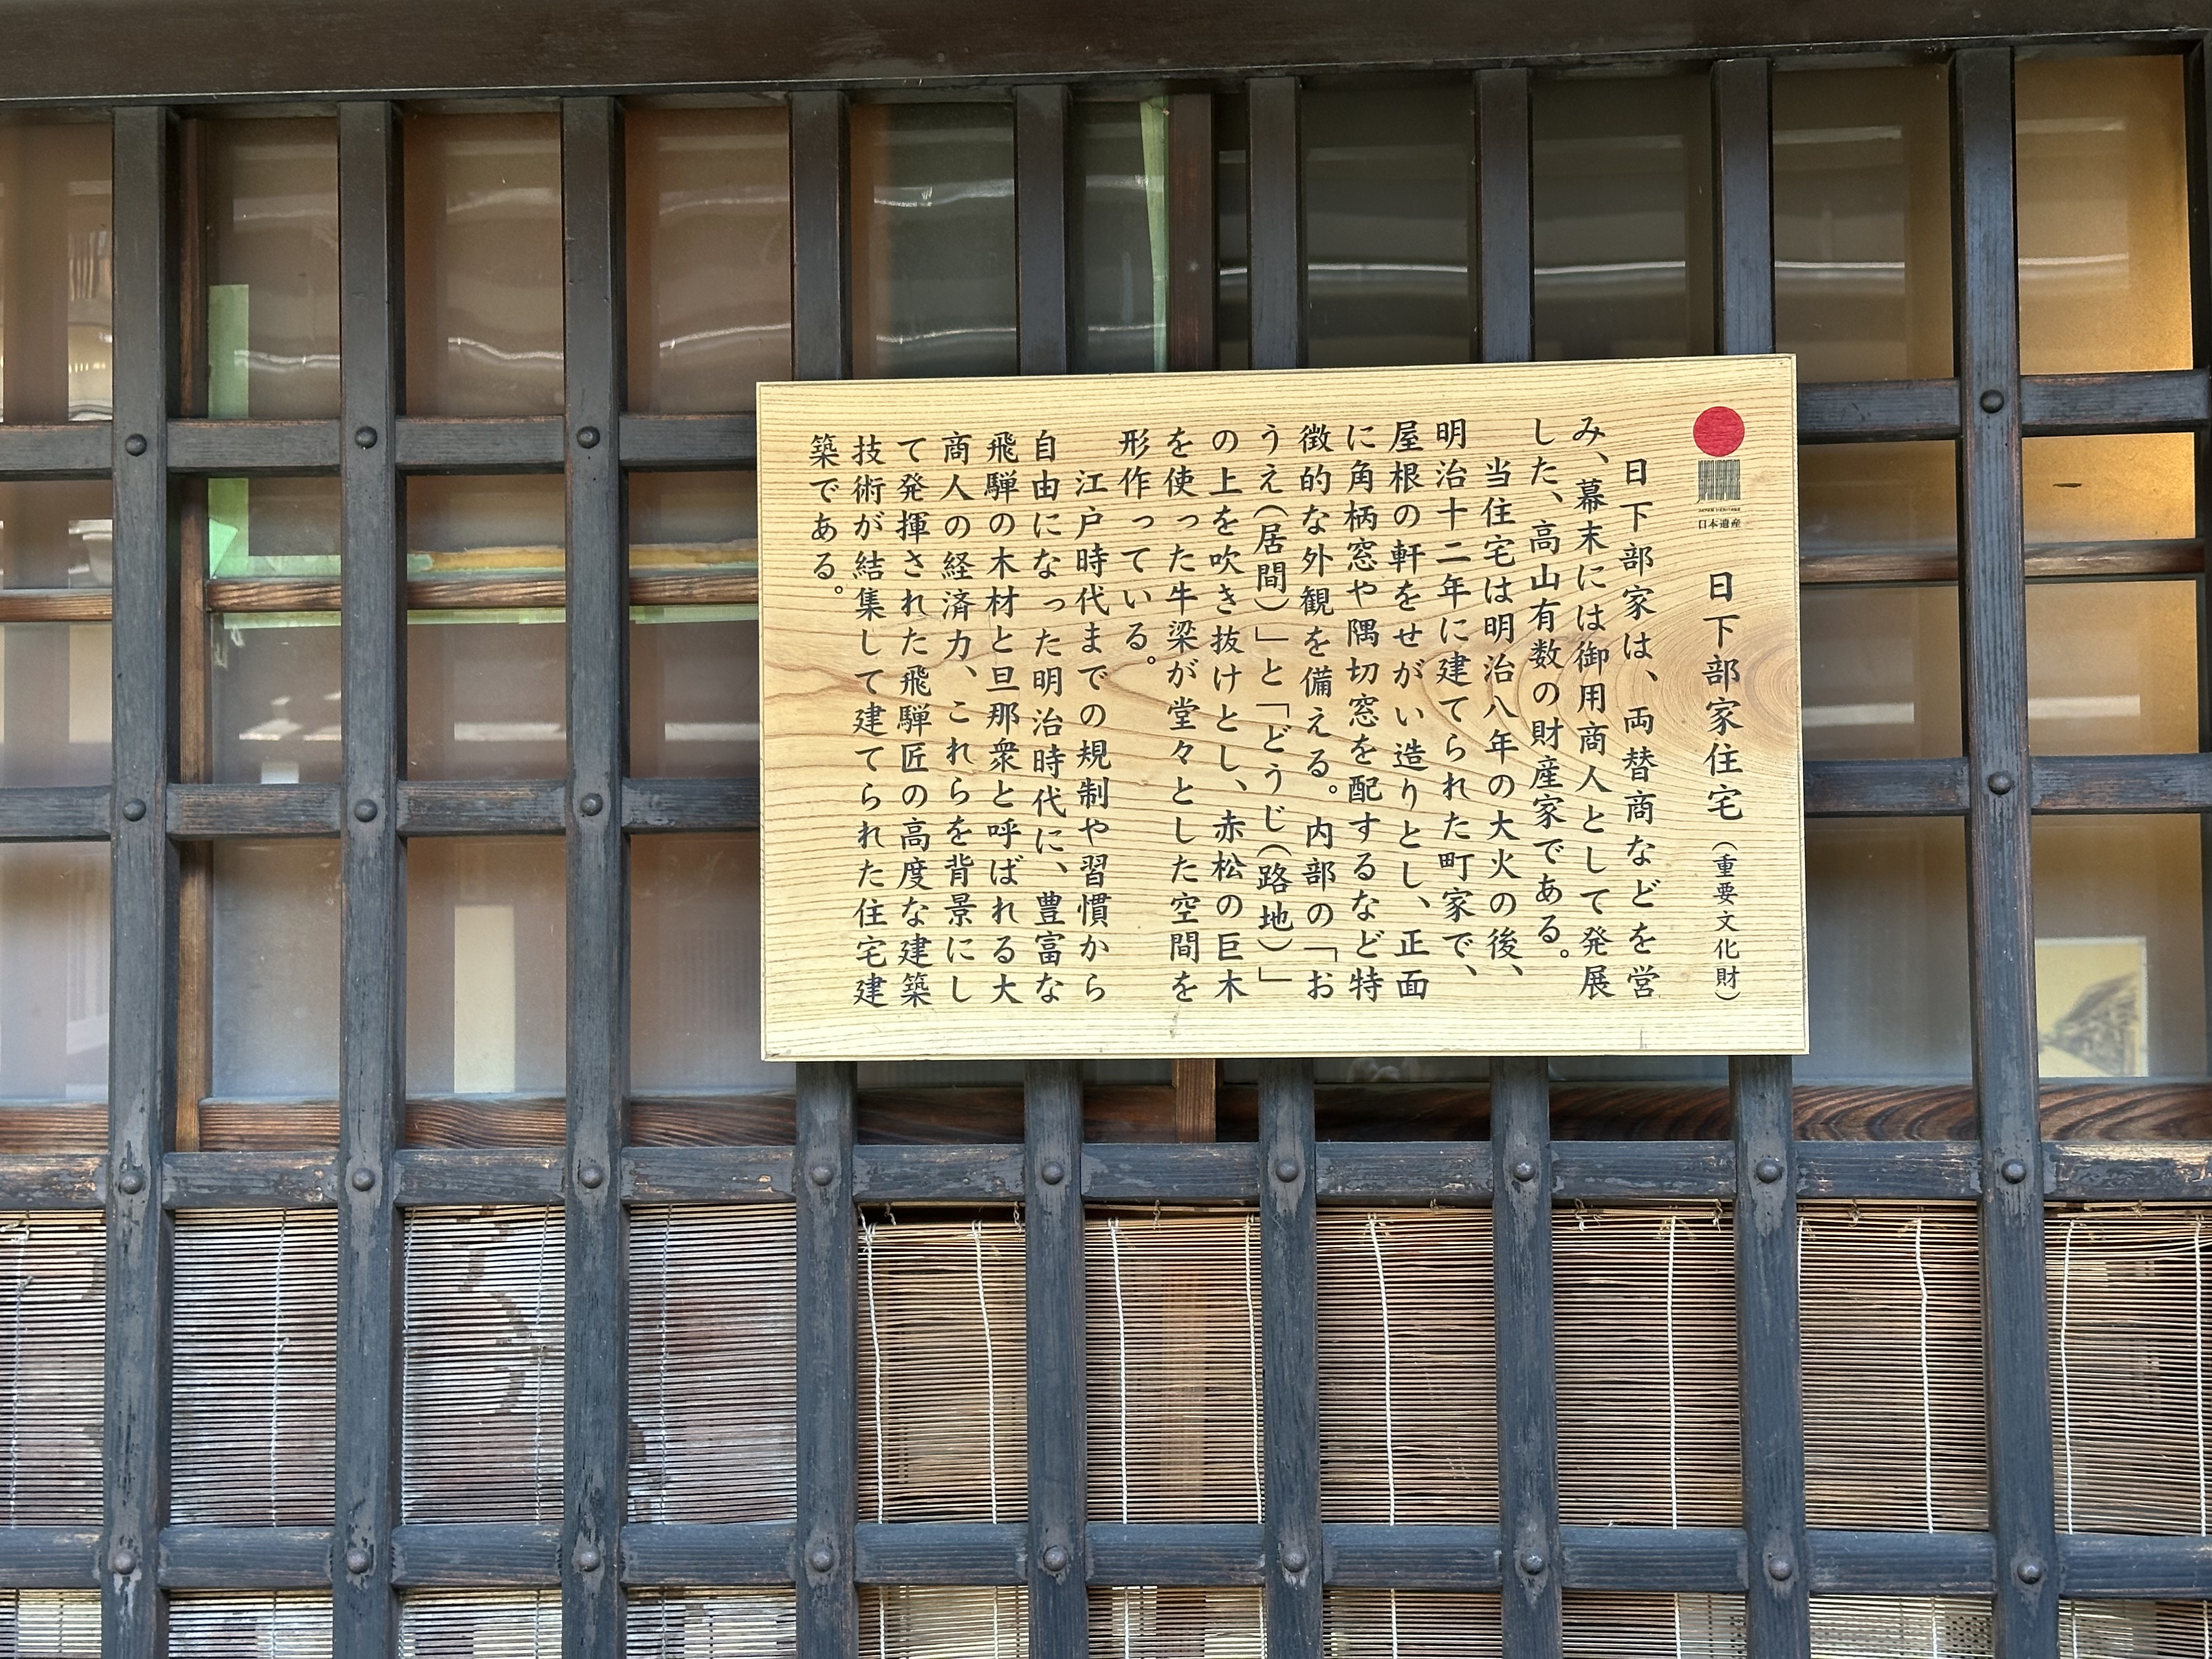 日下部家住宅(重要文化財)
日下部家は、両替商などを営
み、幕末には御用商人として発展
した、高山有数の財産家である。
当住宅は明治八年の大火の後、
明治十二年に建てられた町家で、
屋根の軒をせがい造りとし、正面
に角柄窓や隅切窓を配するなど特
徴的な外観を備える。内部の「お
うえ(居間)」と「どうじ(路地)」
の上を吹き抜けとし、赤松の巨木
を使った牛梁が堂々とした空間を
形作っている。
江戸時代までの規制や習慣から
自由になった明治時代に、豊富な
飛騨の木材と旦那衆と呼ばれる大
商人の経済力、これらを背景にし
て発揮された飛騨匠の高度な建築
技術が結集して建てられた住宅建
築である。
JAPAN HERITAGE
日本遺産